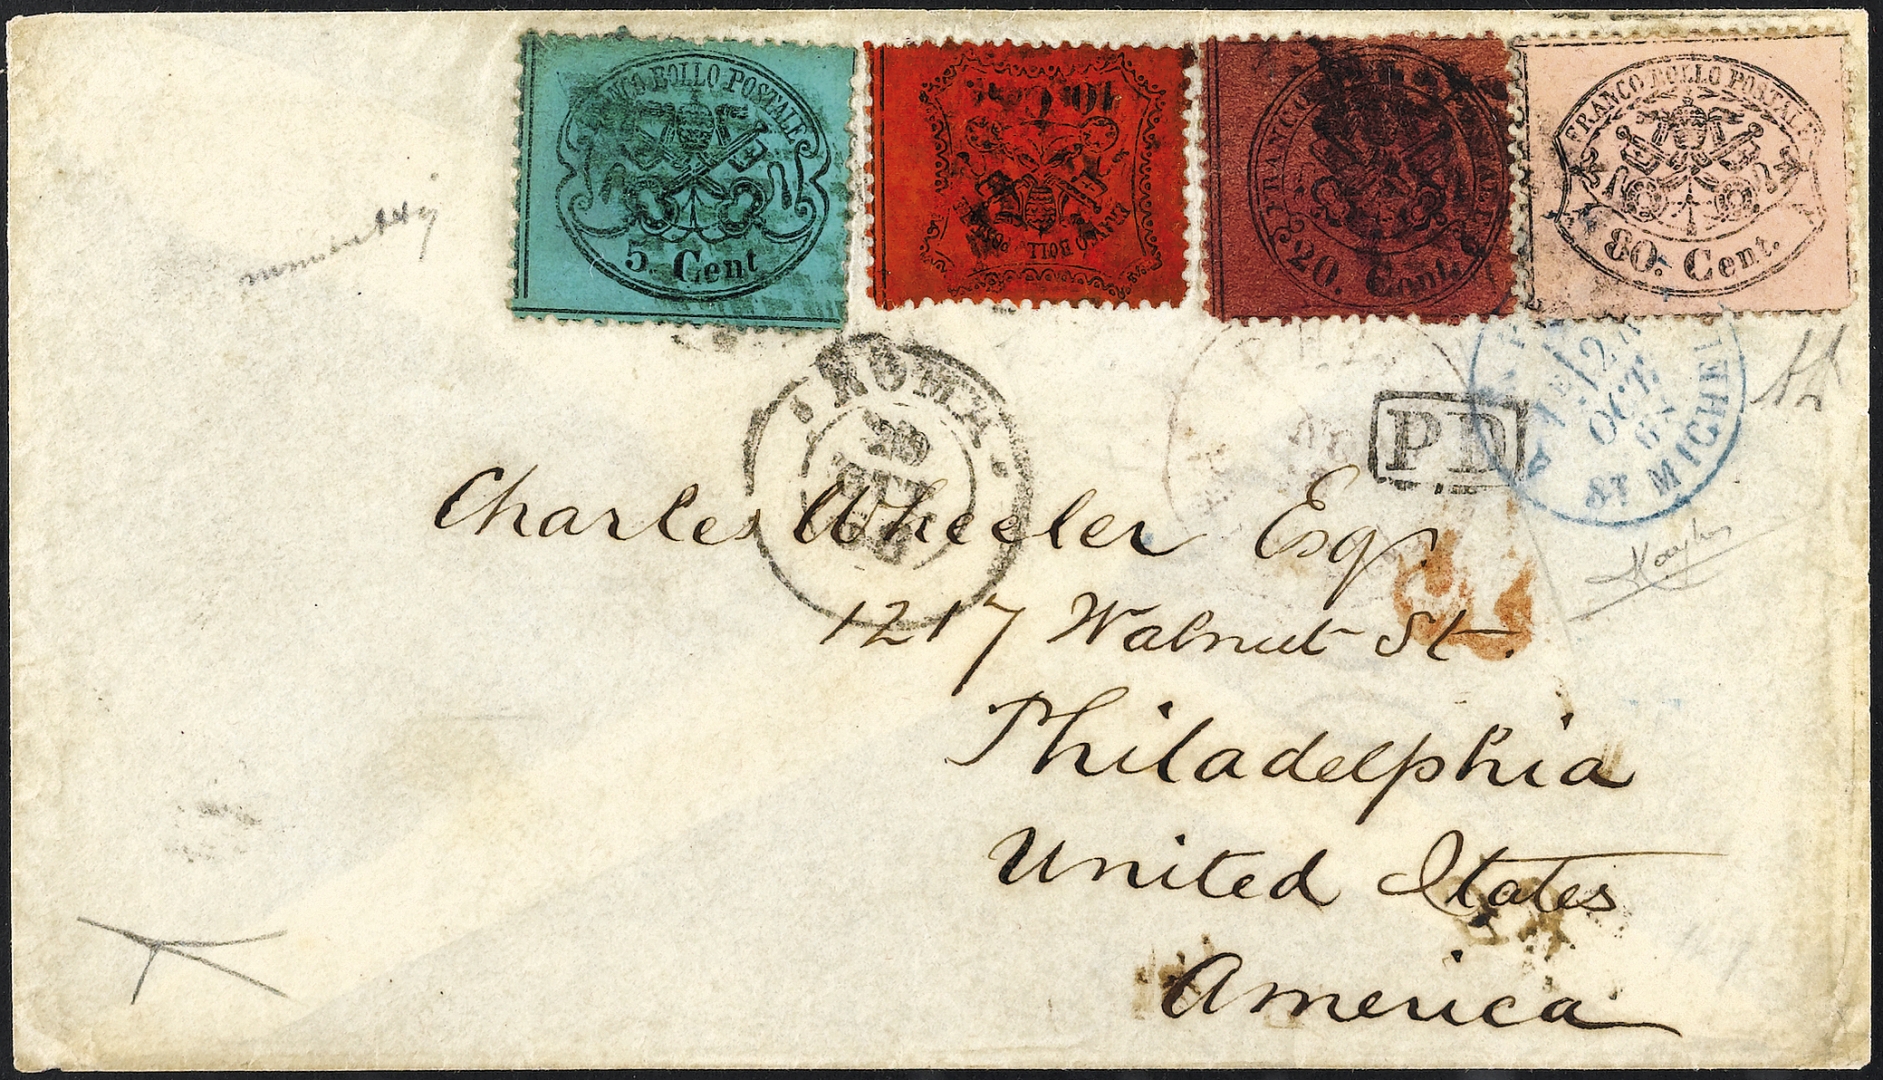 FRANCO BOLLO POSTALE
5 Cent
10 Cent.
FRANCO BOLL POST
FRANCO
20. Cent.
FRANCO BOLLO POSTALE
80. Cent.
ROMA
20
OTT
68
PD
24
OCT
ST MICHEL
Charles Wheeler Esq.
1217 Walnut St.
Philadelphia
United States
America